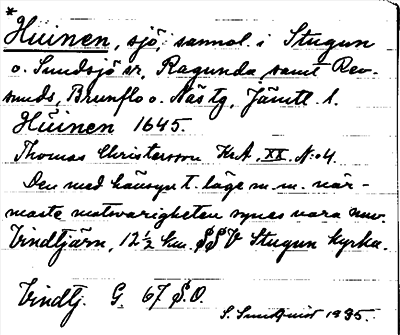 *
Hüinen, sjö, sannol. i Stugun
o. Sundsjö sr, Ragunda samt Rev-
sunds, Brunflo o. Näs tg, Jämtl. l.
Hüinen 1645.
Thomas Christersson KrA, XX. N:o 4.
Den med hänsyn t. läge m. m. när-
maste motsvarigheten synes vara nuv.
Vindtjärn, 12 1/2 km. SSV Stugun kyrka.
Vindtj. G. 67 S.O.
S. Sundquist 1935.